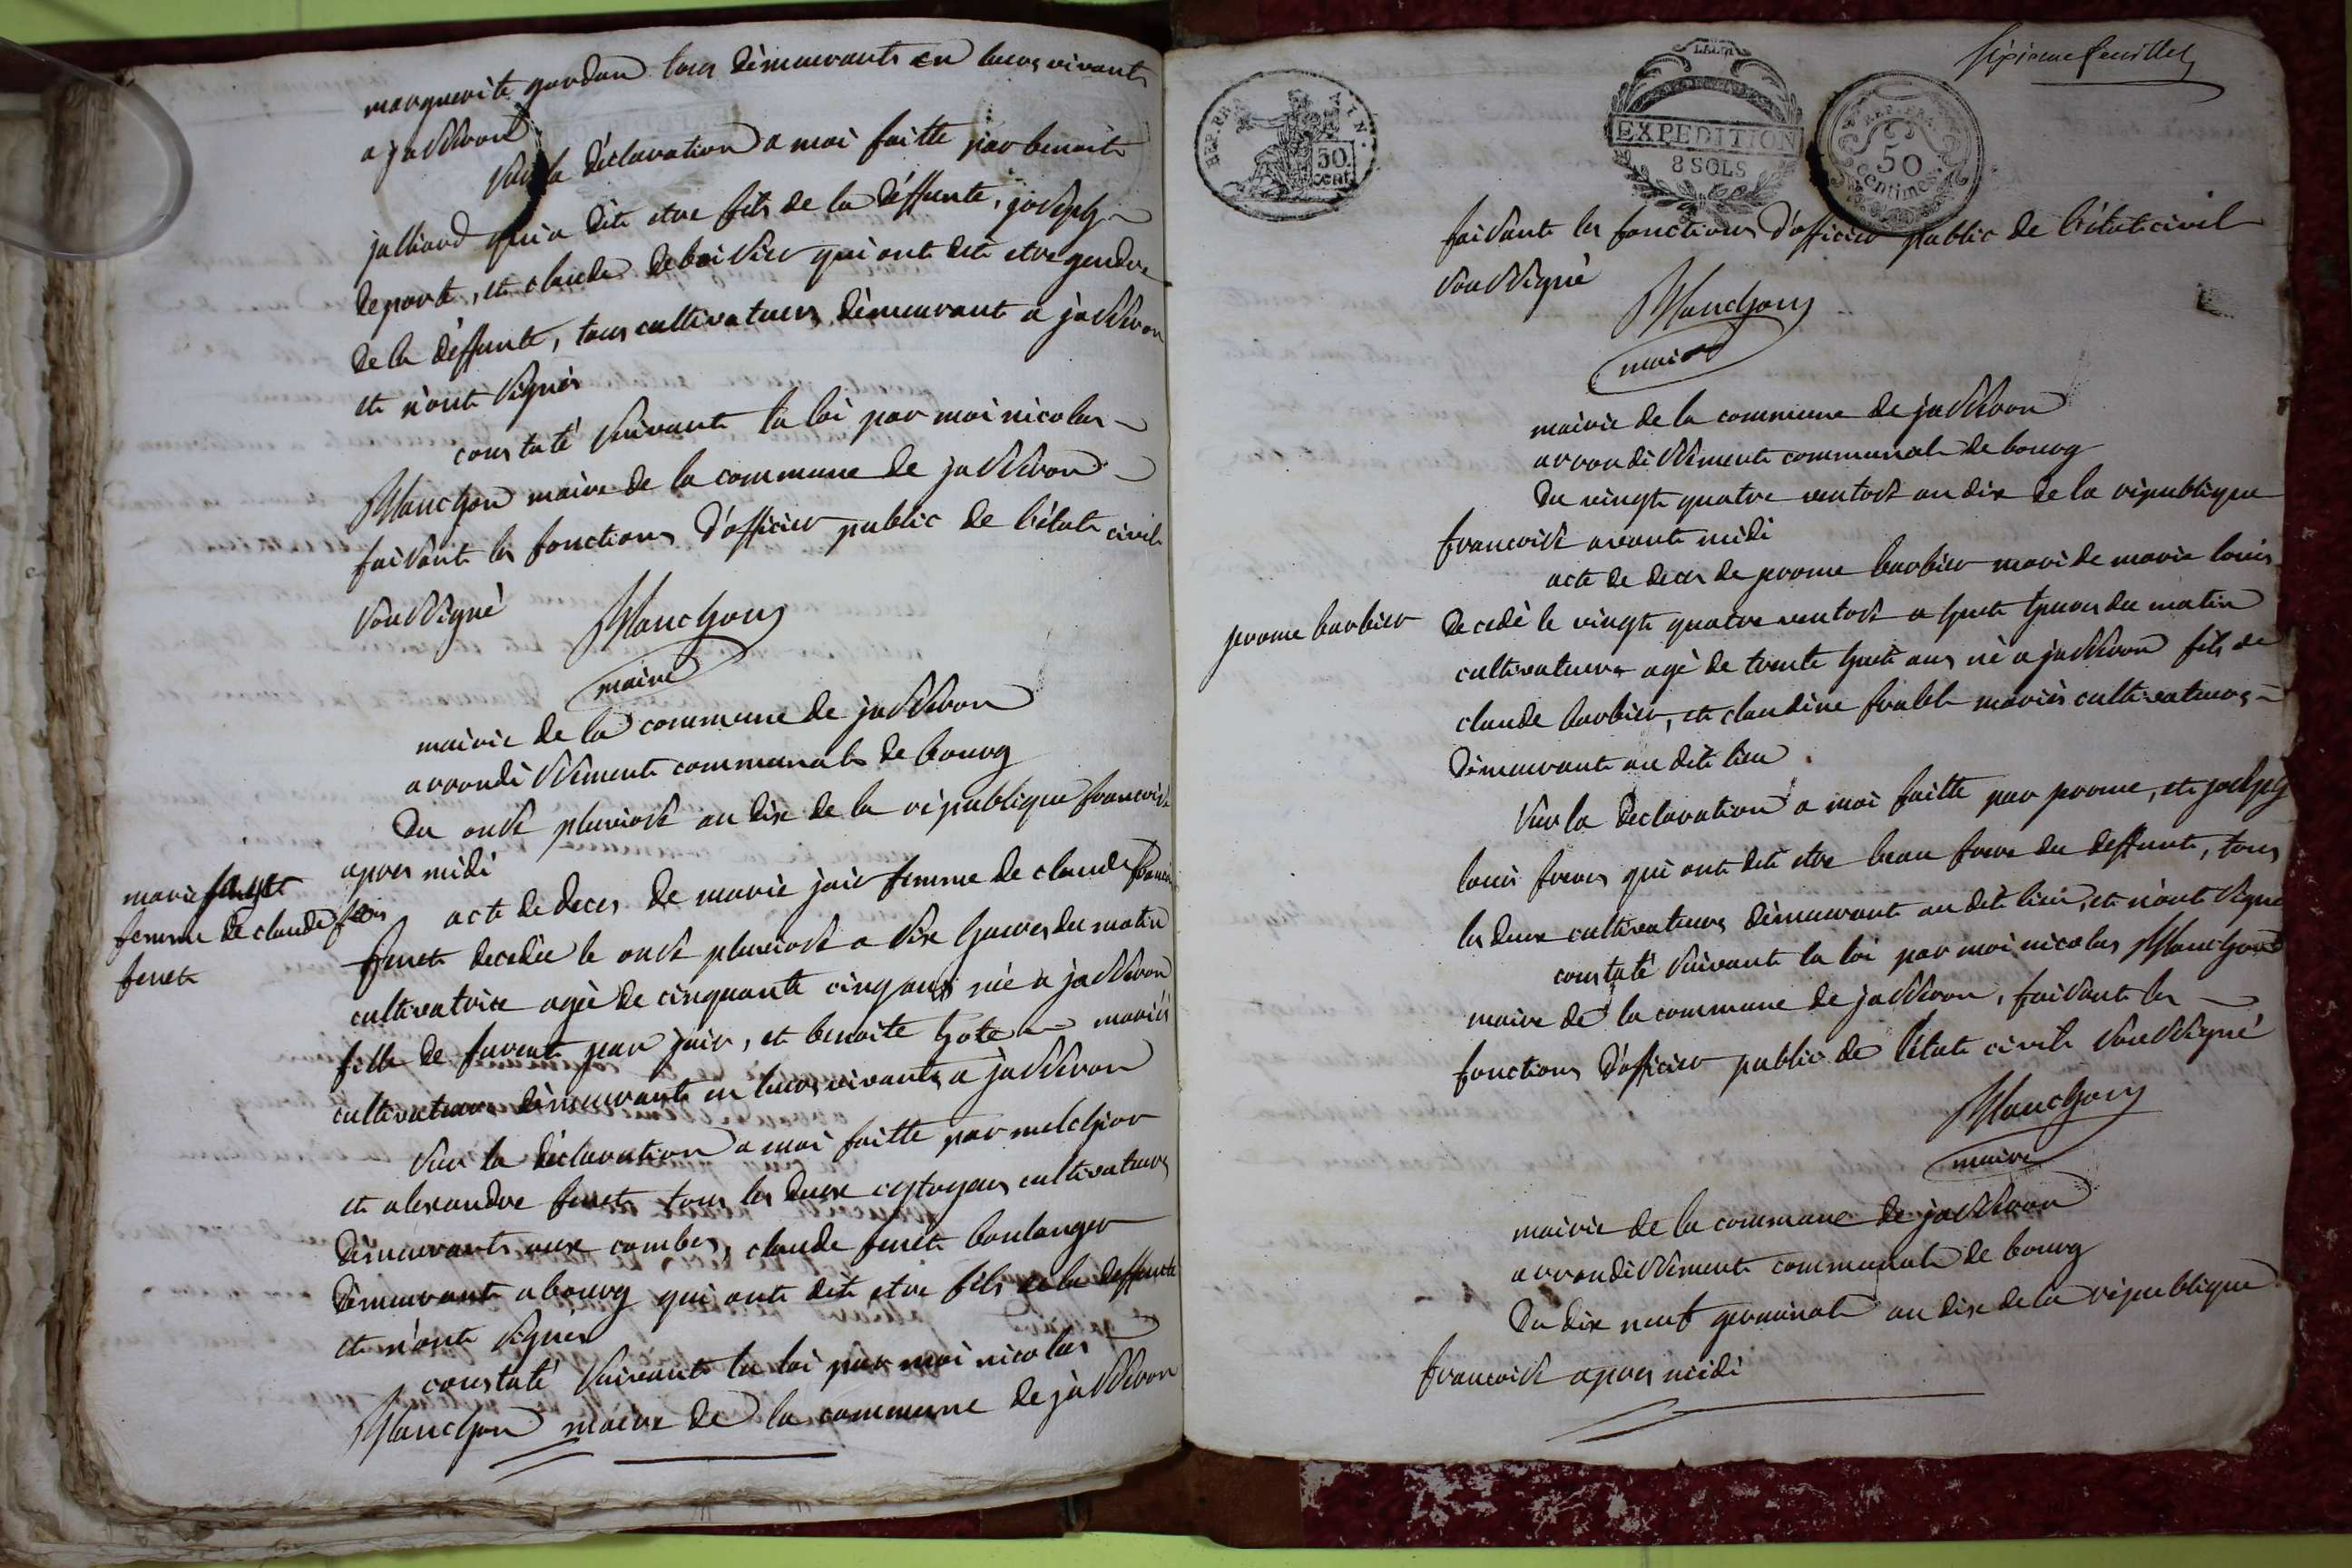 marguerite gordan tous dèmeurants en leurs vivants
a jasseron
Sur la dèclaration a moi faitte par benoit
julliard qui a dit etre fils de la dèffunte, joseph
deporte, et claude deboissieu qui ont dit etre gendre
de la dèffunte, tous cultivateurs dèmeurant a jasseron
et n'ont signés
constaté suivant la loi par moi nicolas
Manchon maire de la commune de jasseron
faisant les fonctions d'officier public de l'état civil
soussigné Manchon
maire
mairie de la commune de jasseron
arrondissement communal de bourg
du onse pluviose an dix de la république francoise
apres midi
marie
femme de claude
feret
acte de deces de marie jair femme de claude
feret decedée le onse pluviose a six heures du matin
cultivatrice agée de cinquante cinq ans née a jasseron
fille de jair, et benoite hote mariés
cultivateurs dèmeurants en leurs vivants a jasseron
Sur la déclaration a moi faitte par melchior
et alexandre feret tous les deux cytoyens cultivateurs
dèmeurants aux combes, claude feret boulanger
dèmeurant a bourg qui ont dit etre fils de la deffunte
et n'ont signés
constaté suivant la loi par moi nicolas
Manchon maire de la commune de jasseron
sixieme feuillet
REP. FRA.
50.
cent.
LA LOI
EXPEDITION
8 SOLS
REP. FRA.
50
centimes.
faisant les fonctions d'officier public de l'état civil
soussigné
Manchon
maire
mairie de la commune de jasseron
arrondissement communal de bourg
Du vingt quatre ventose an dix de la république
francoise avant midi
jerome barbier
acte de deces de jerome barbier mari de marie louis
decedé le vingt quatre ventose a huit heures du matin
cultivateur agé de trente huit ans né a jasseron fils de
claude barbier, et claudine mariés cultivateurs
dèmeurant au dit lieu
Sur la dèclaration a moi faitte par jerome, et joseph
louis freres qui ont dit etre beau frere du deffunt, tous
les deux cultivateurs dèmeurant au dit lieu, et n'ont signé
constaté suivant la loi par moi nicolas Manchon
maire de la commune de jasseron, faisant les
fonctions d'officier public de l'état civil soussigné
Manchon
maire
mairie de la commune de jasseron
arrondissement communal de bourg
Du dix neuf germinal an dix de la république
francoise apres midi